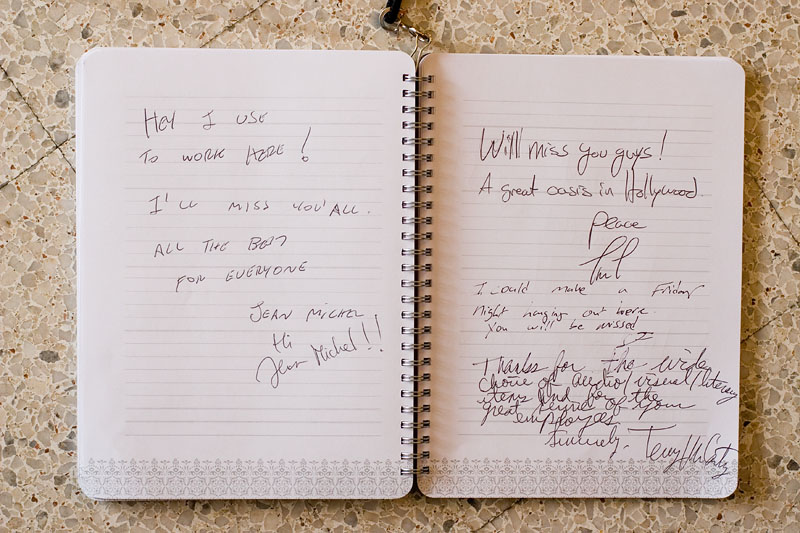 Hey I USE
TO WORK HERE!
I'LL MISS YOU'ALL.
ALL THE BEST
FOR EVERYONE
JEAN MICHEL
Hi
Jean Michel!!
Will miss you guys!
A great oasis in Hollywood.
Peace
I could make a Friday
Night hanging out here.
You will be missed
Thanks for the wide
choice of audio/visual/literary
items and for the
great service of your
employees
Sincerely, Terry